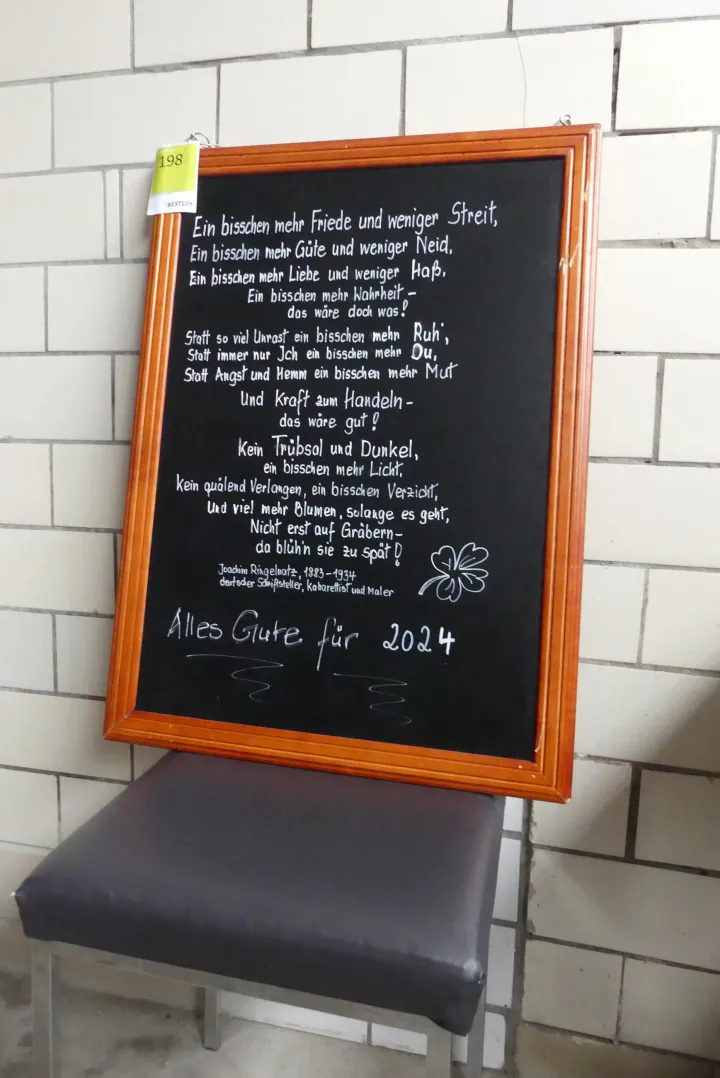 198
RESTLOS
Ein bisschen mehr Friede und weniger Streit,
Ein bisschen mehr Güte und weniger Neid,
Ein bisschen mehr Liebe und weniger Haß,
Ein bisschen mehr Wahrheit –
das wäre doch was!
Statt so viel Unrast ein bisschen mehr Ruh',
Statt immer nur Ich ein bisschen mehr Du,
Statt Angst und Hemm ein bisschen mehr Mut
Und Kraft zum Handeln –
das wäre gut!
Kein Trübsal und Dunkel,
ein bisschen mehr Licht,
Kein quälend Verlangen, ein bisschen Verzicht,
Und viel mehr Blumen, solange es geht,
Nicht erst auf Gräbern –
da blüh'n sie zu spät!
Joachim Ringelnatz, 1883–1934
deutscher Schriftsteller, Kabarettist und Maler
Alles Gute für 2024